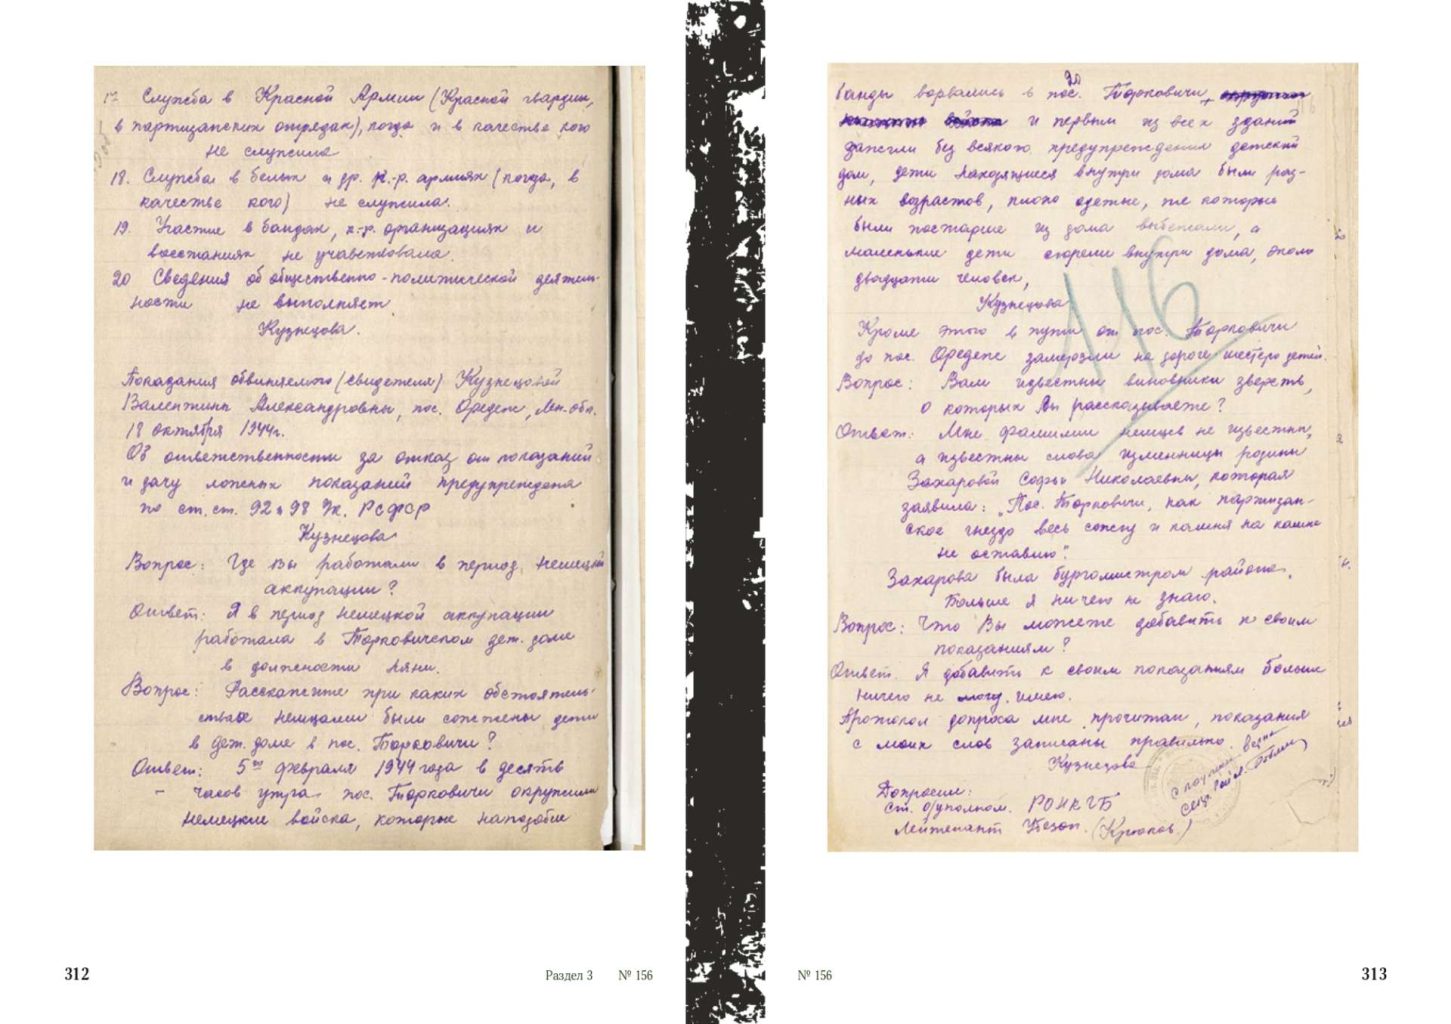 17 Служба в Красной Армии (Красной гвардии,
в партизанских отрядах), когда и в качестве кого
не служила
18. Служба в белых и др. к.-р. армиях (когда, в
качестве кого) не служила.
19. Участие в бандах, к-р. организациях и
восстаниях не учавствовала.
20 Сведения об общественно-политической деятель-
ности не выполняет
Кузнецова.
Показания обвиняемого (свидетеля) Кузнецовой
Валентины Александровны, пос. Оредеж, Лен. обл.
18 октября 1944г.
Об ответственности за отказ от показаний
и дачу ложных показаний предупреждена
по ст. ст. 92 и 98 Ук. РСФСР
Кузнецова
Вопрос: Где вы работали в период немецкой
аккупации?
Ответ: Я в период немецкой аккупации
работала в Торковичском дет. доме
в должности няни.
Вопрос: Расскажите при каких обстоятель-
ствах немцами были сожжены дети
в дет. доме в пос. Торковичи?
Ответ: 5го февраля 1944 года в десять
часов утра пос. Торковичи окружили
немецкие войска, которые наподобие
312
Раздел 3 № 156
банды ворвались в пос. Торковичи,
и первым из всех зданий
зажгли без всякого предупреждения детский
дом, дети находящиеся внутри дома были раз-
ных возрастов, плохо одетые, те которые
были постарше из дома выбежали, а
маленькие дети сгорели внутри дома, около
двадцати человек,
Кузнецова
116
Кроме этого в пути от пос. Торковичи
до пос. Оредеж замерзли на дороге шестеро детей.
Вопрос: Вам известны виновники зверств,
о которых Вы рассказываете?
Ответ: Мне фамилии немцев не известны,
а известны слова изменницы родины
Захаровой Софьи Николаевны, которая
заявила: „Пос. Торковичи, как партизан-
ское гнездо весь сожгу и камня на камне
не оставлю".
Захарова была бургомистром района.
Больше я ничего не знаю.
Вопрос: Что Вы можете добавить к своим
показаниям?
Ответ. Я добавить к своим показаниям больше
ничего не могу. имею.
Протокол допроса мне прочитан, показания
с моих слов записаны правильно.
Кузнецова
Допросил:
Ст. о/уполном. РОНКГБ
Лейтенант (Крюков.)
№ 156
313